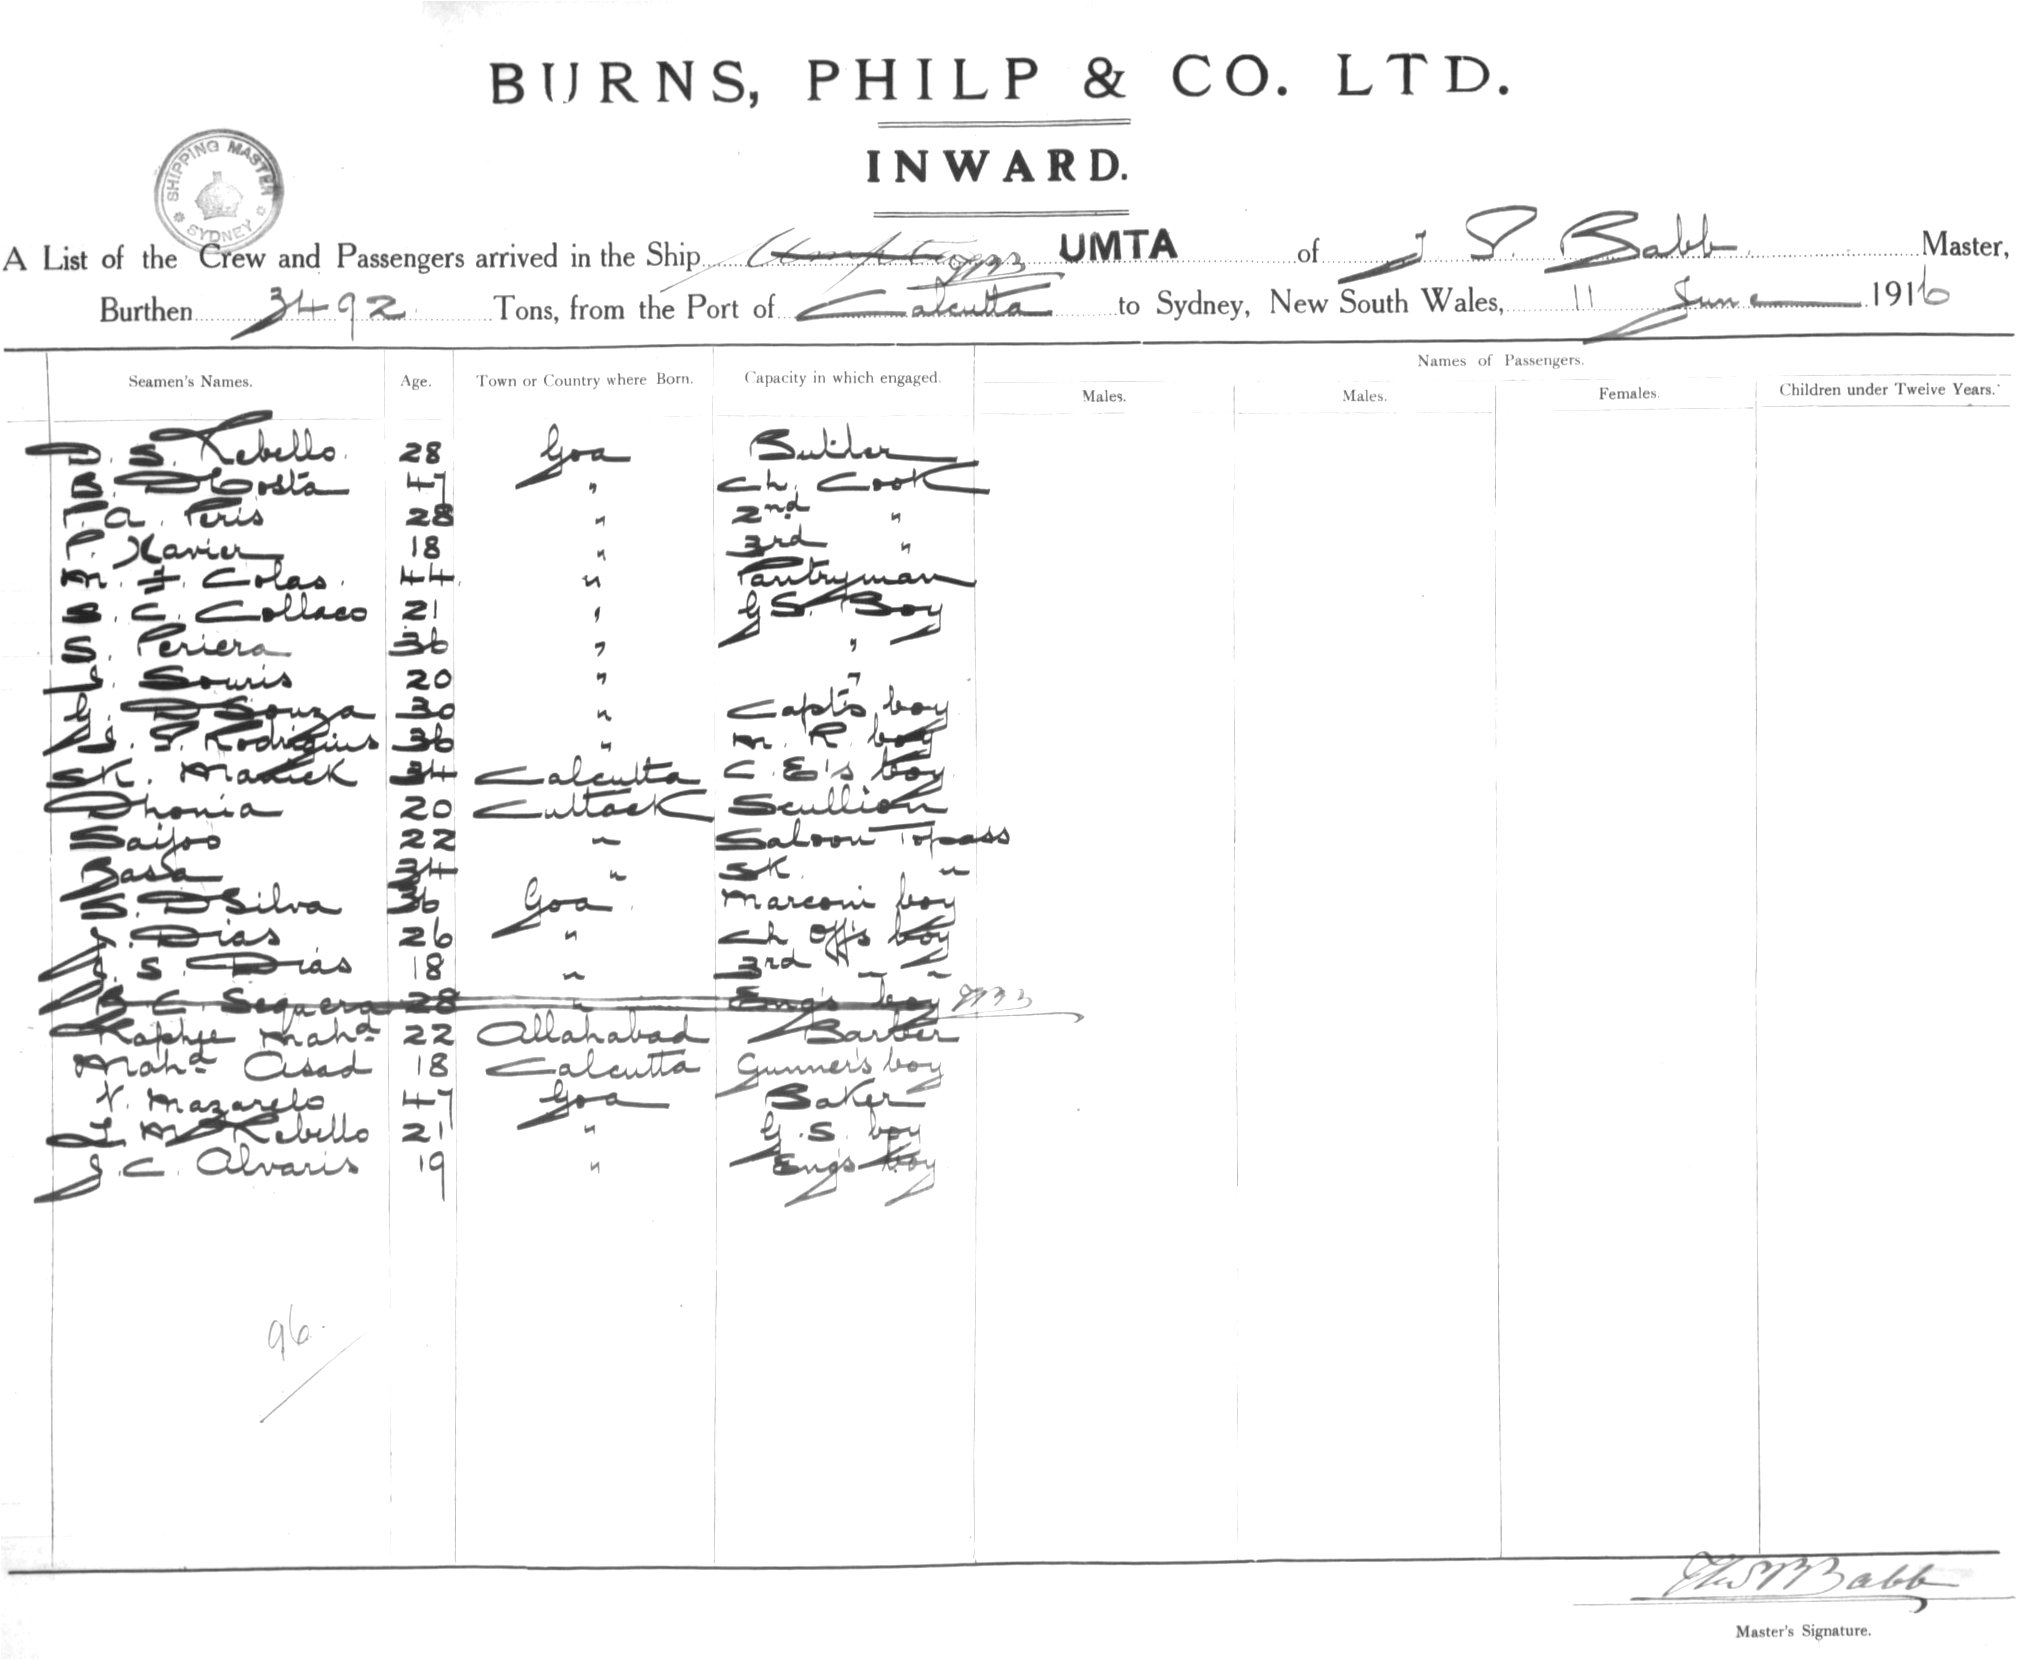 BURNS, PHILP & CO. LTD.
INWARD.
SHIPPING MASTER
SYDNEY
A List of the Crew and Passengers arrived in the Ship UMTA of J S. Babb Master,
Burthen 3492 Tons, from the Port of Calcutta to Sydney, New South Wales, 11 June 1916
Names of Passengers.
Seamen's Names. Age. Town or Country where Born. Capacity in which engaged. Males. Males. Females. Children under Twelve Years.
D. S. Rebello. 28 Goa Butler
B. DCosta 47 " Ch. Cook
P. A. Peris 28 " 2nd "
P. Xavier 18 " 3rd "
M. F. Colas. 44. " Pantryman
S. C. Collaco 21 " G S. Boy
S. Periera 36 " "
J. Souris 20 " "
G. D Souza 30 " Capt's boy
J. S. Rodrigius 36 " M. R. boy
SK. Madick 34 Calcutta C. E's boy
Dhonia 20 Cuttack Scullion
Saijoo 22 " Saloon Topass
Basa 34 " SK. "
S. DSilva 36 Goa Marconi boy
J. Dias 26 " Ch Off's boy
J. S. Dias 18 " 3rd " "
B C. Sequera 28 " Eng's boy
Kaphye Mahd 22 Allahabad Barber
Mahd Asad 18 Calcutta Gunner's boy
V. Mazarelo 47 Goa Baker
L. M. Rebello 21 " G. S. boy
J. C. Alvaris 19 " Eng's boy
96.
Babb
Master's Signature.